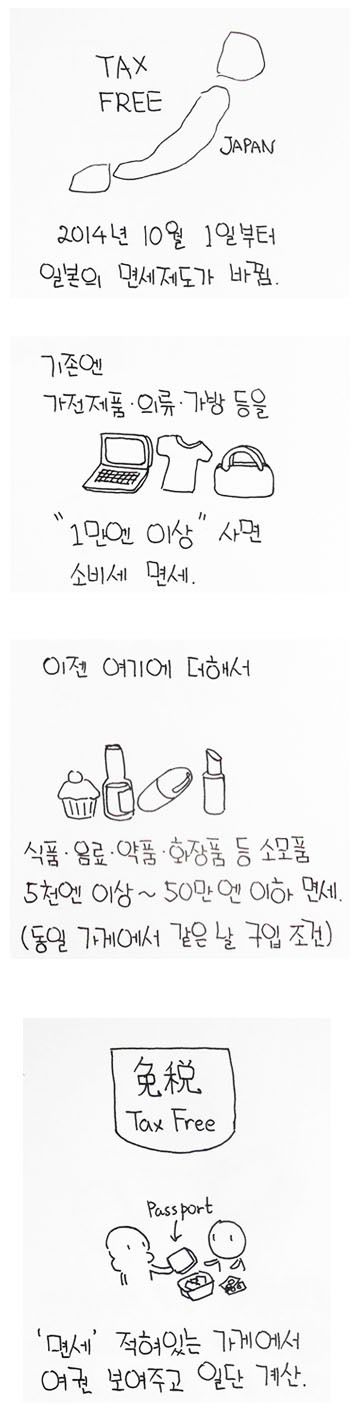 TAX
FREE
JAPAN
2014년 10월 1일부터
일본의 면세제도가 바뀜.
기존엔
가전제품·의류·가방 등을
"1만엔 이상" 사면
소비세 면세.
이젠 여기에 더해서
식품·음료·약품·화장품 등 소모품
5천엔 이상~50만엔 이하 면세.
(동일 가게에서 같은 날 구입 조건)
免税
Tax Free
Passport
'면세' 적혀있는 가게에서
여권 보여주고 일단 계산.